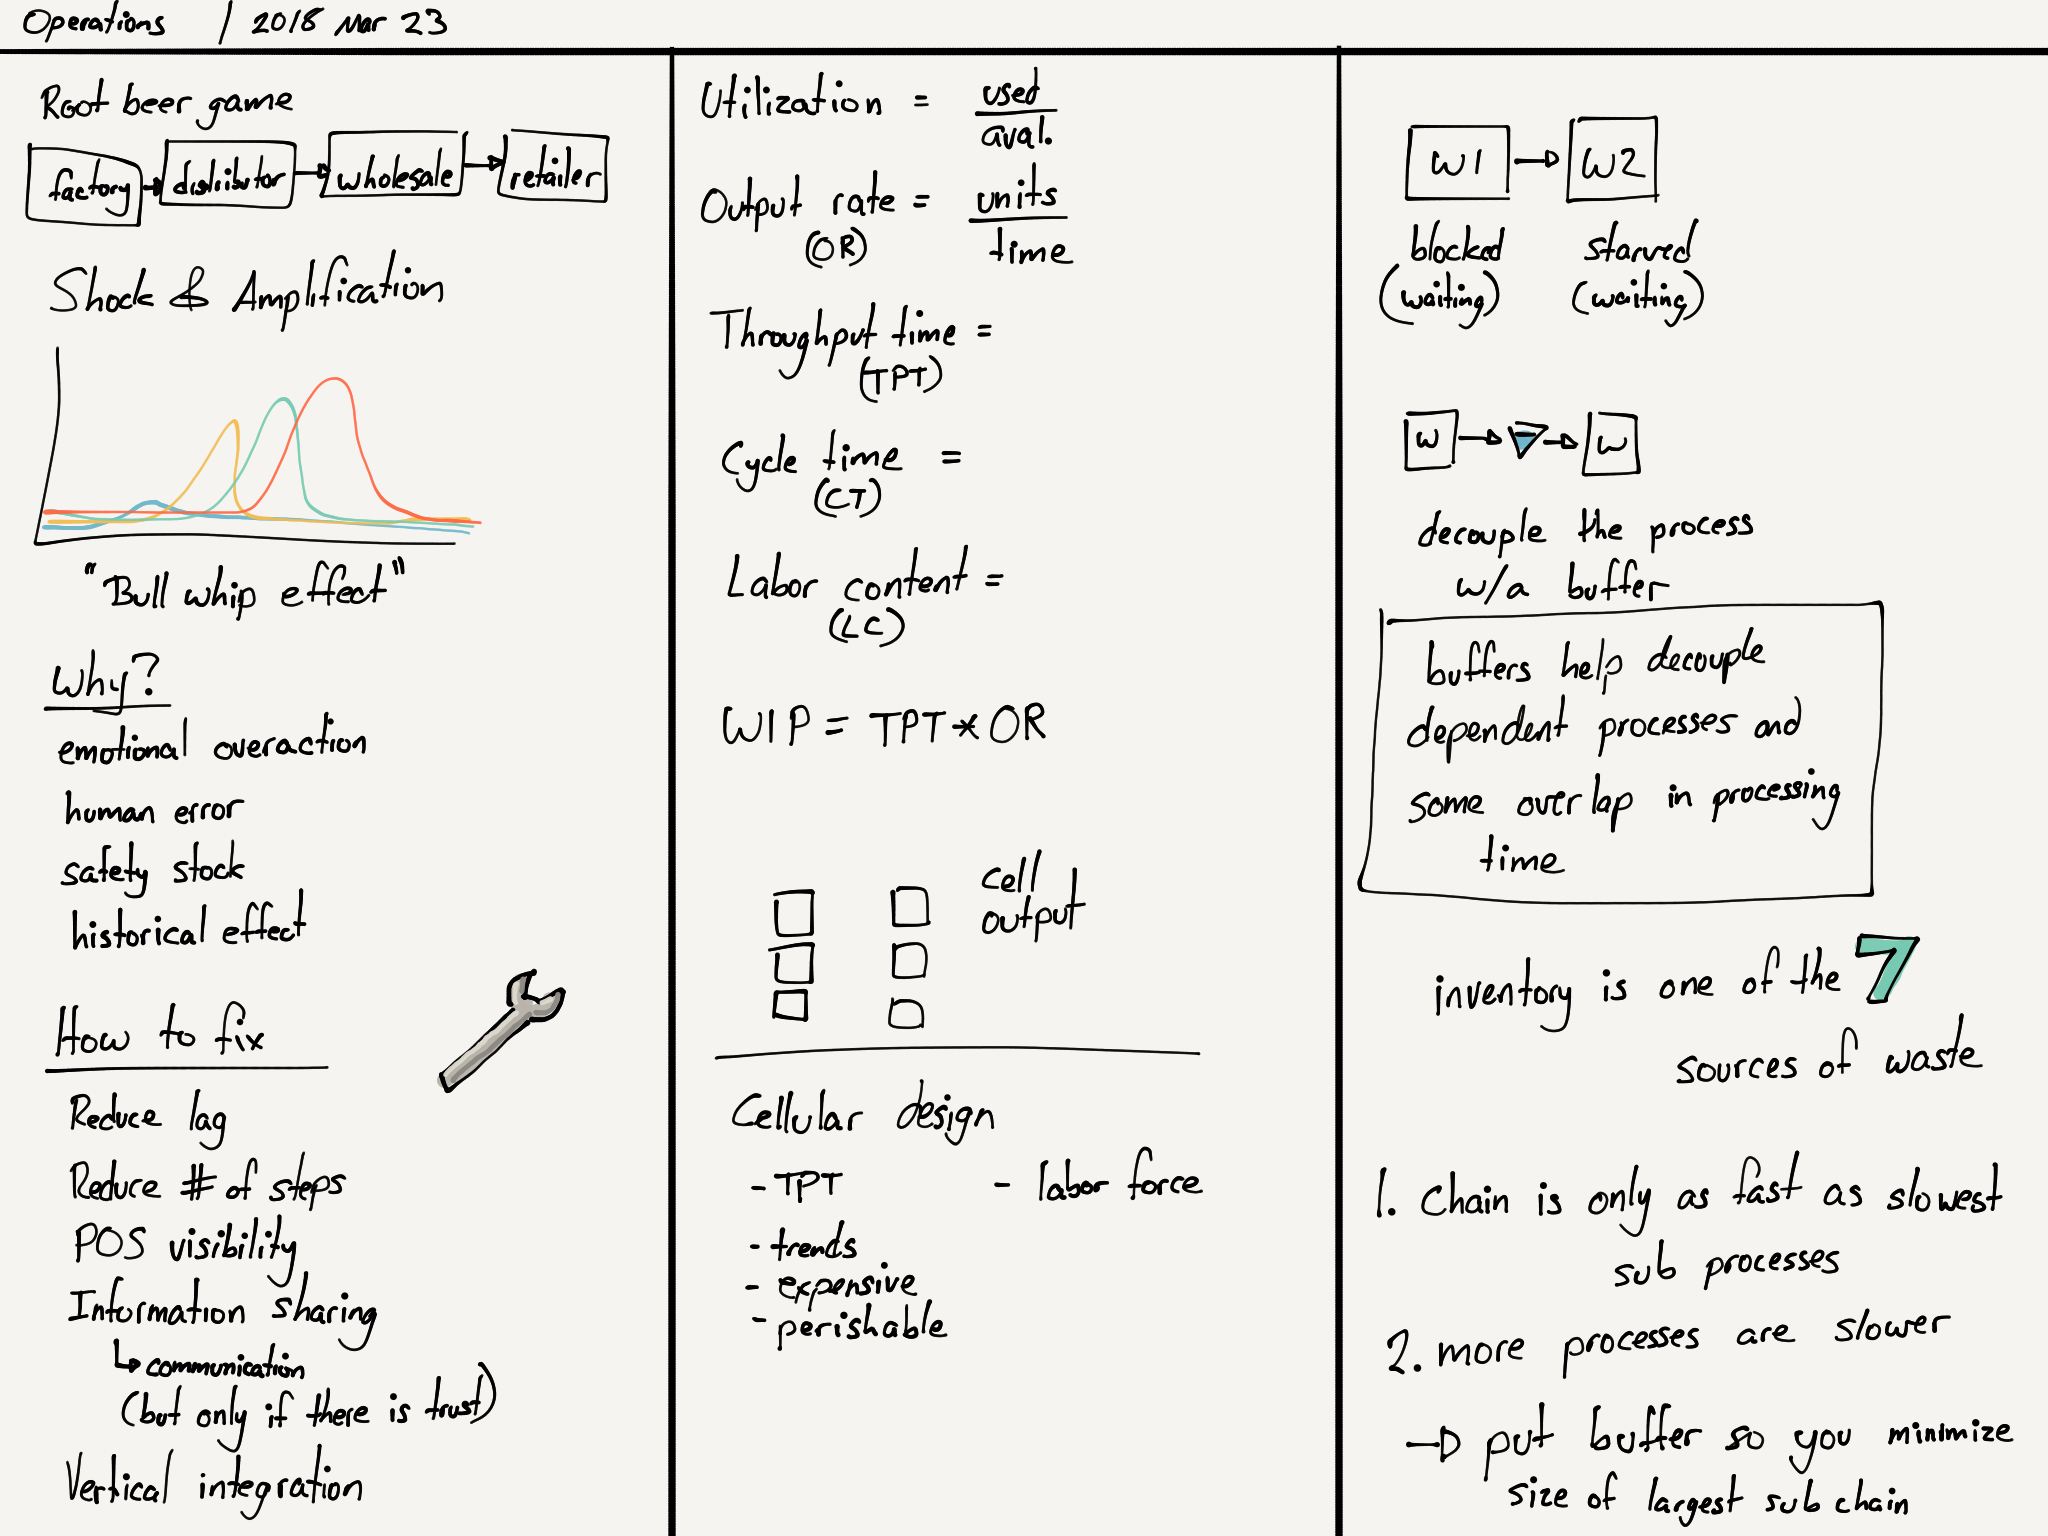 Operations / 2018 Mar 23
Root beer game
factory distributor wholesale retailer
Shock & Amplification
"Bull whip effect"
Why?
emotional overaction
human error
safety stock
historical effect
How to fix
Reduce lag
Reduce # of steps
POS visibility
Information sharing
communication
(but only if there is trust)
Vertical integration
Utilization = used
aval.
Output rate = units
(OR) time
Throughput time =
(TPT)
Cycle time =
(CT)
Labor content =
(LC)
WIP = TPT * OR
cell
output
Cellular design
- TPT - labor force
- trends
- expensive
- perishable
W1 W2
blocked starved
(waiting) (waiting)
W W
decouple the process
w/a buffer
buffers help decouple
dependent processes and
some overlap in processing
time
inventory is one of the 7
sources of waste
1. Chain is only as fast as slowest
sub processes
2. more processes are slower
→ put buffer so you minimize
size of largest sub chain